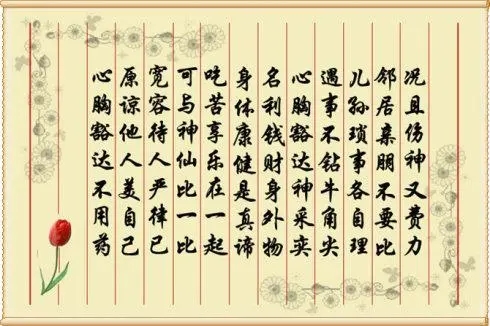 况且伤神又费力
邻居亲朋不要比
儿孙琐事各自理
遇事不钻牛角尖
心胸豁达神采奕
名利钱财身外物
身体康健是真谛
吃苦享乐在一起
可与神仙比一比
宽容待人严律己
原谅他人美自己
心胸豁达不用药